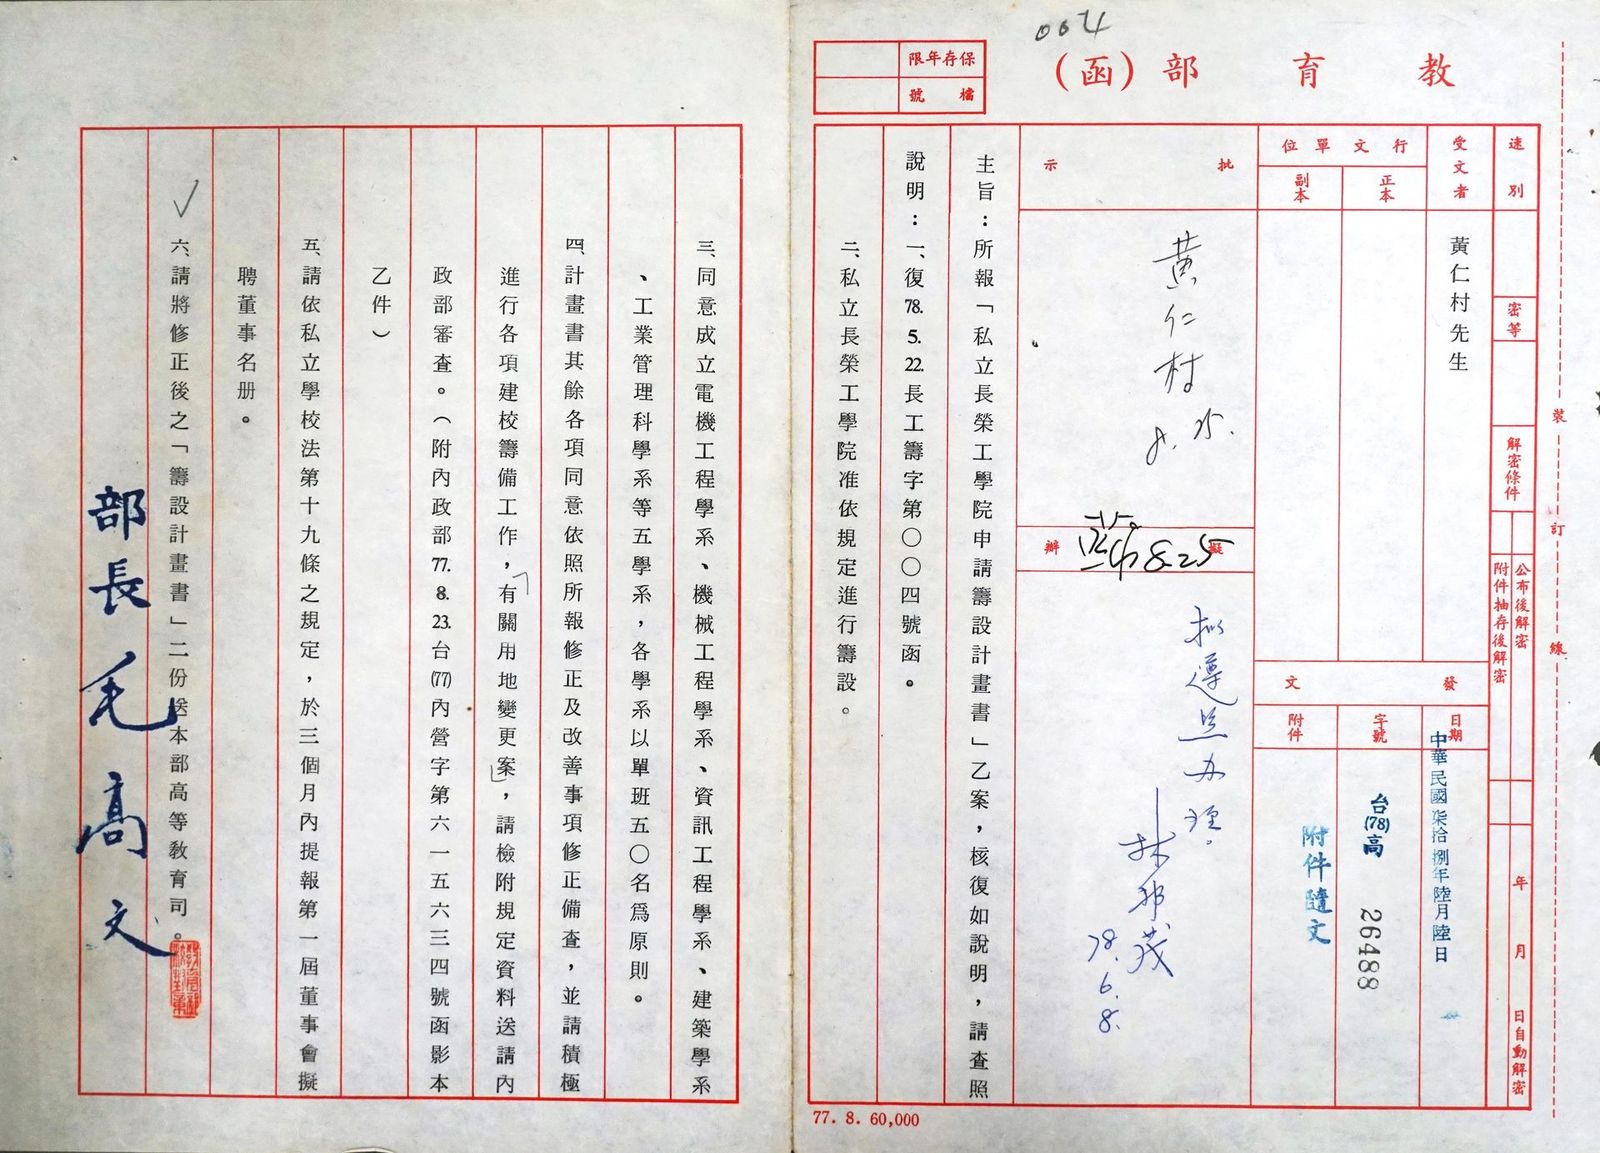 004
教育部(函)
保存年限
檔號
速別
密等
解密條件
公布後解密
附件抽存後解密
年月日自動解密
裝
訂
線
受文者
黃仁村先生
行文單位
正本
副本
發文
日期
中華民國柒拾捌年陸月陸日
字號
台(78)高
26488
附件
附件隨文
批示
黃仁村
8.25.
擬辦
8-25
拟遵照办理。
林邦茂
78.6.8.
主旨：所報「私立長榮工學院申請籌設計畫書」乙案，核復如說明，請查照
說明：一、復78.5.22.長工籌字第〇〇四號函。
二、私立長榮工學院准依規定進行籌設。
77. 8. 60,000
三、同意成立電機工程學系、機械工程學系、資訊工程學系、建築學系
、工業管理科學系等五學系，各學系以單班五〇名為原則。
四、計畫書其餘各項同意依照所報修正及改善事項修正備查，並請積極
進行各項建校籌備工作，有關用地變更案，請檢附規定資料送請內
政部審查。（附內政部77.8.23.台(77)內營字第六一五六三四號函影本
乙件）
五、請依私立學校法第十九條之規定，於三個月內提報第一屆董事會擬
聘董事名册。
六、請將修正後之「籌設計畫書」二份送本部高等教育司。
部長毛高文